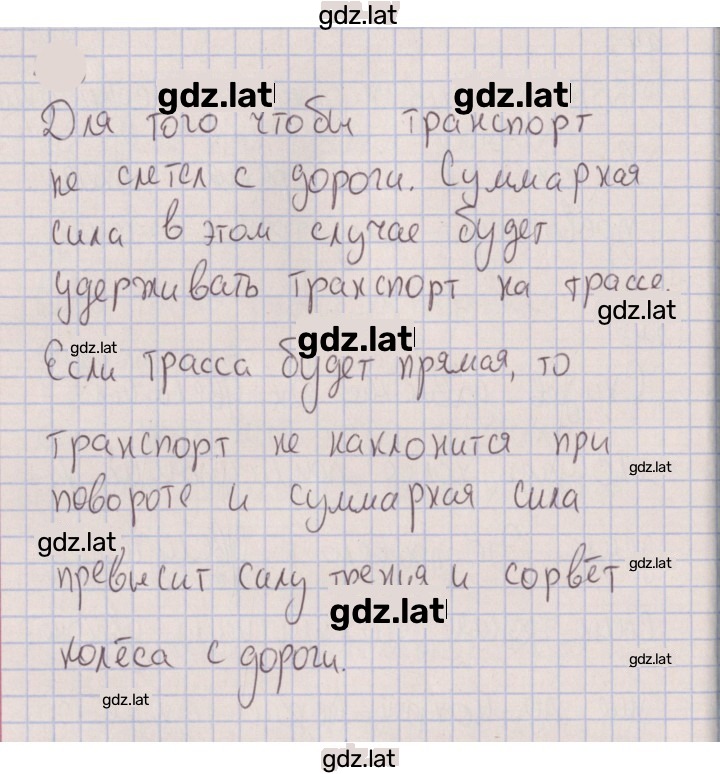 gdz.lat
gdz.lat gdz.lat
Для того чтобы транспорт
не слетел с дороги. Суммарная
сила в этом случае будет
удерживать транспорт на трассе.
gdz.lat
gdz.lat gdz.lat
Если трасса будет прямая, то
транспорт не наклонится при
gdz.lat
повороте и суммарная сила
gdz.lat
превысит силу трения и сорвёт
gdz.lat
gdz.lat
колёса с дороги.
gdz.lat
gdz.lat
gdz.lat